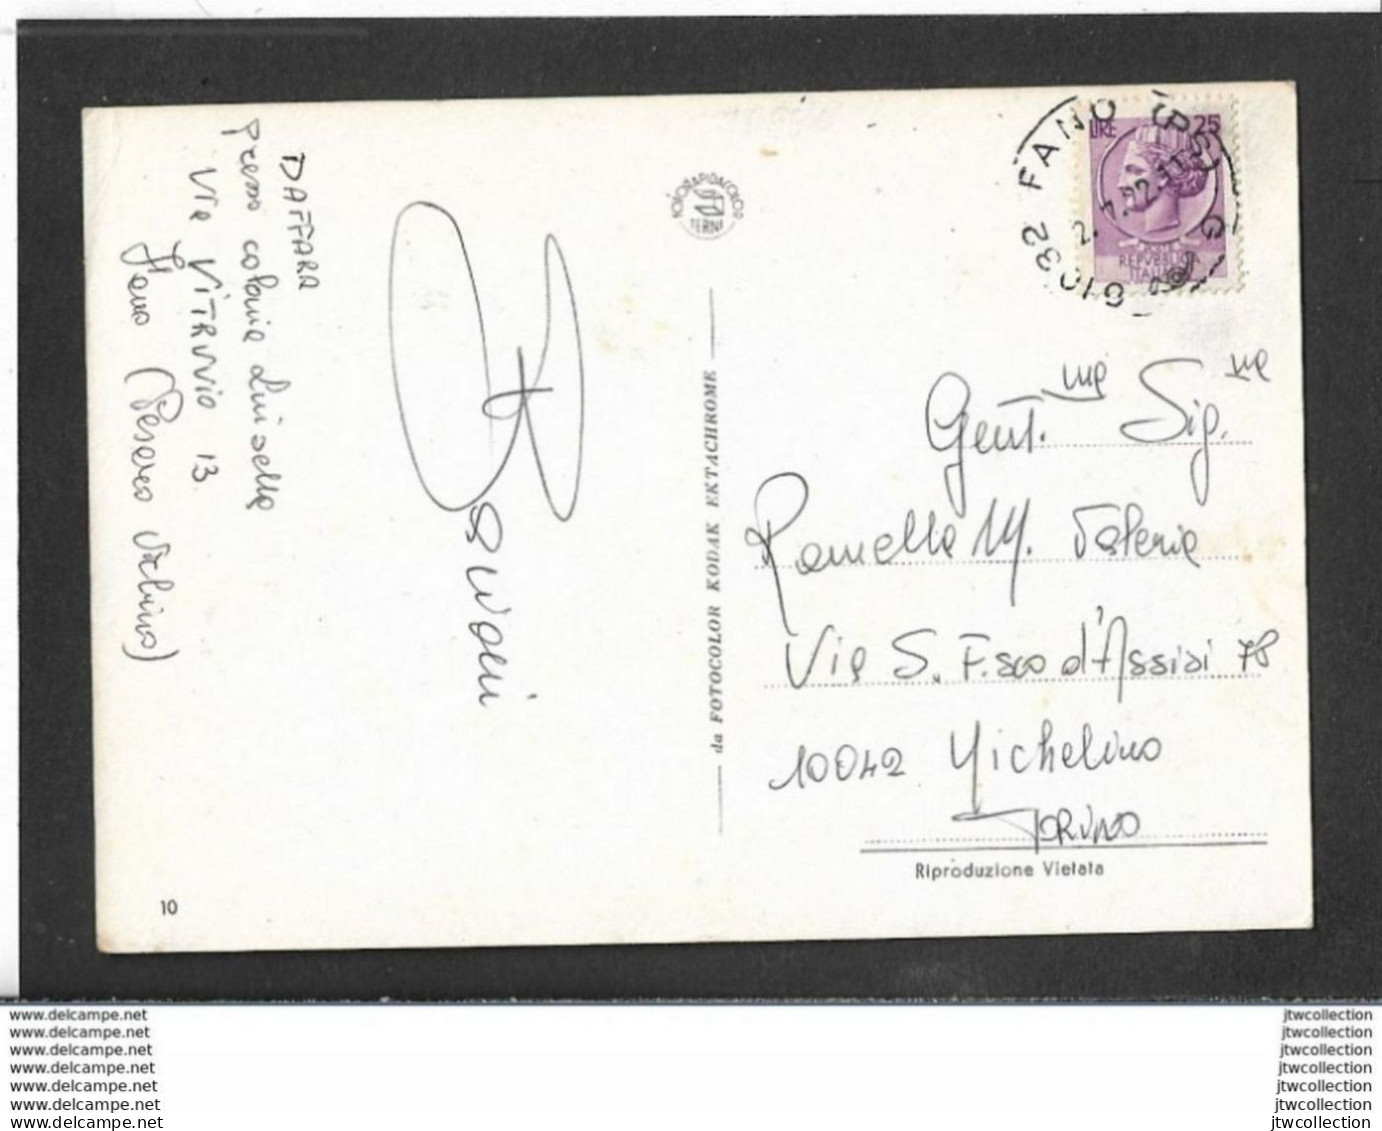 DAFFARA
presso colonia Luisella
Via VITRUVIO 13
Fano (Pesaro Urbino)
KODRAPIDACOLOR
TERNI
da FOTOCOLOR KODAK EKTACHROME
61032 FANO (PS)
LIRE 25
REPVBBLICA
ITALIANA
Gent.me Sig.ne
Ramella M. Valeria
Via S. F.sco d'Assisi 78
10042 Nichelino
TORINO
Riproduzione Vietata
10
www.delcampe.net
www.delcampe.net
www.delcampe.net
www.delcampe.net
www.delcampe.net
www.delcampe.net
www.delcampe.net
jtwcollection
jtwcollection
jtwcollection
jtwcollection
jtwcollection
jtwcollection
jtwcollection